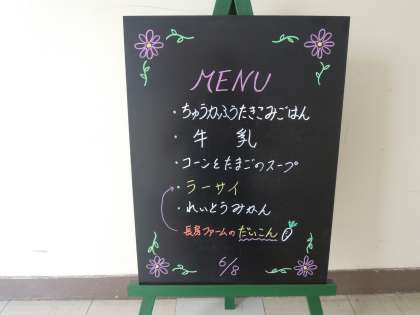 MENU
・ちゅうかふうたきこみごはん
・牛乳
・コーンとたまごのスープ
・ラーサイ
・れいとうみかん
長房ファームのだいこん
6/8